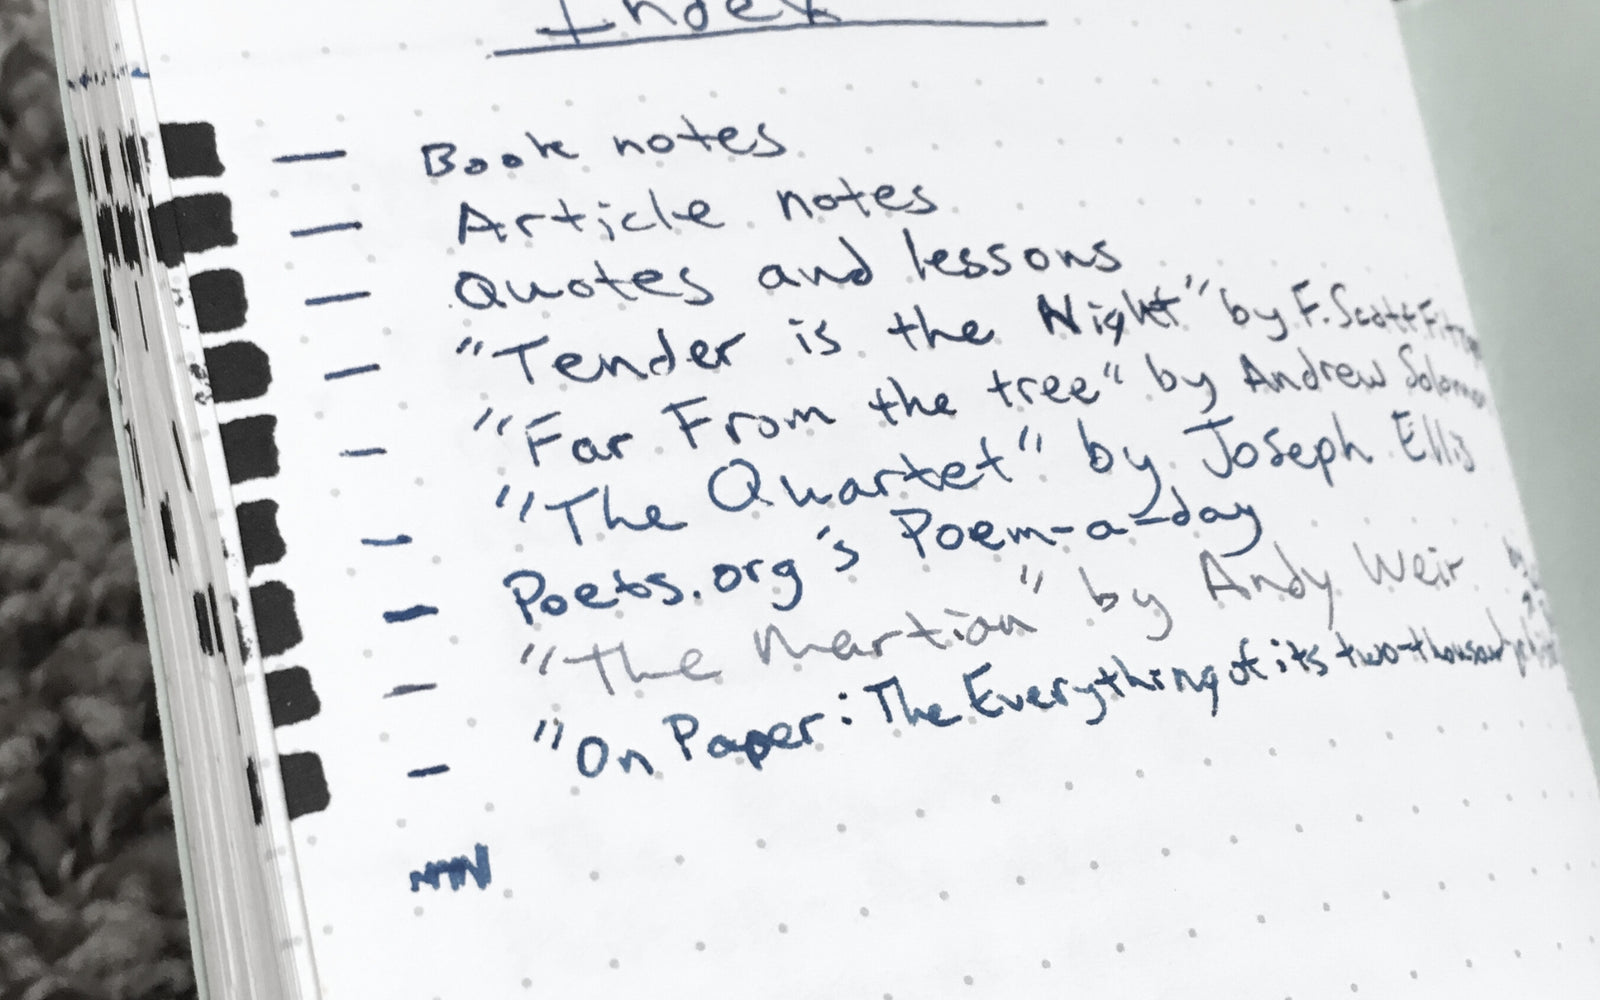 Index
— Book notes
— Article notes
— Quotes and lessons
— "Tender is the Night" by F. Scott
— "Far From the tree" by Andrew Solomon
— "The Quartet" by Joseph Ellis
— Poets.org's Poem-a-day
— "The Martian" by Andy Weir
— "On Paper: The Everything of its two-thousand